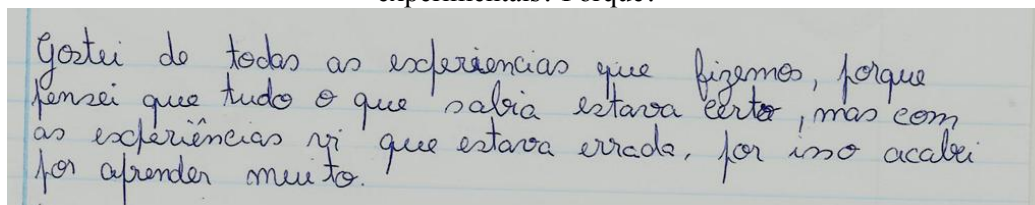 experimentais? Porque?
Gostei de todas as experiencias que fizemos, porque
pensei que tudo o que sabia estava certo, mas com
as experiências vi que estava errada, por isso acabei
por aprender muito.